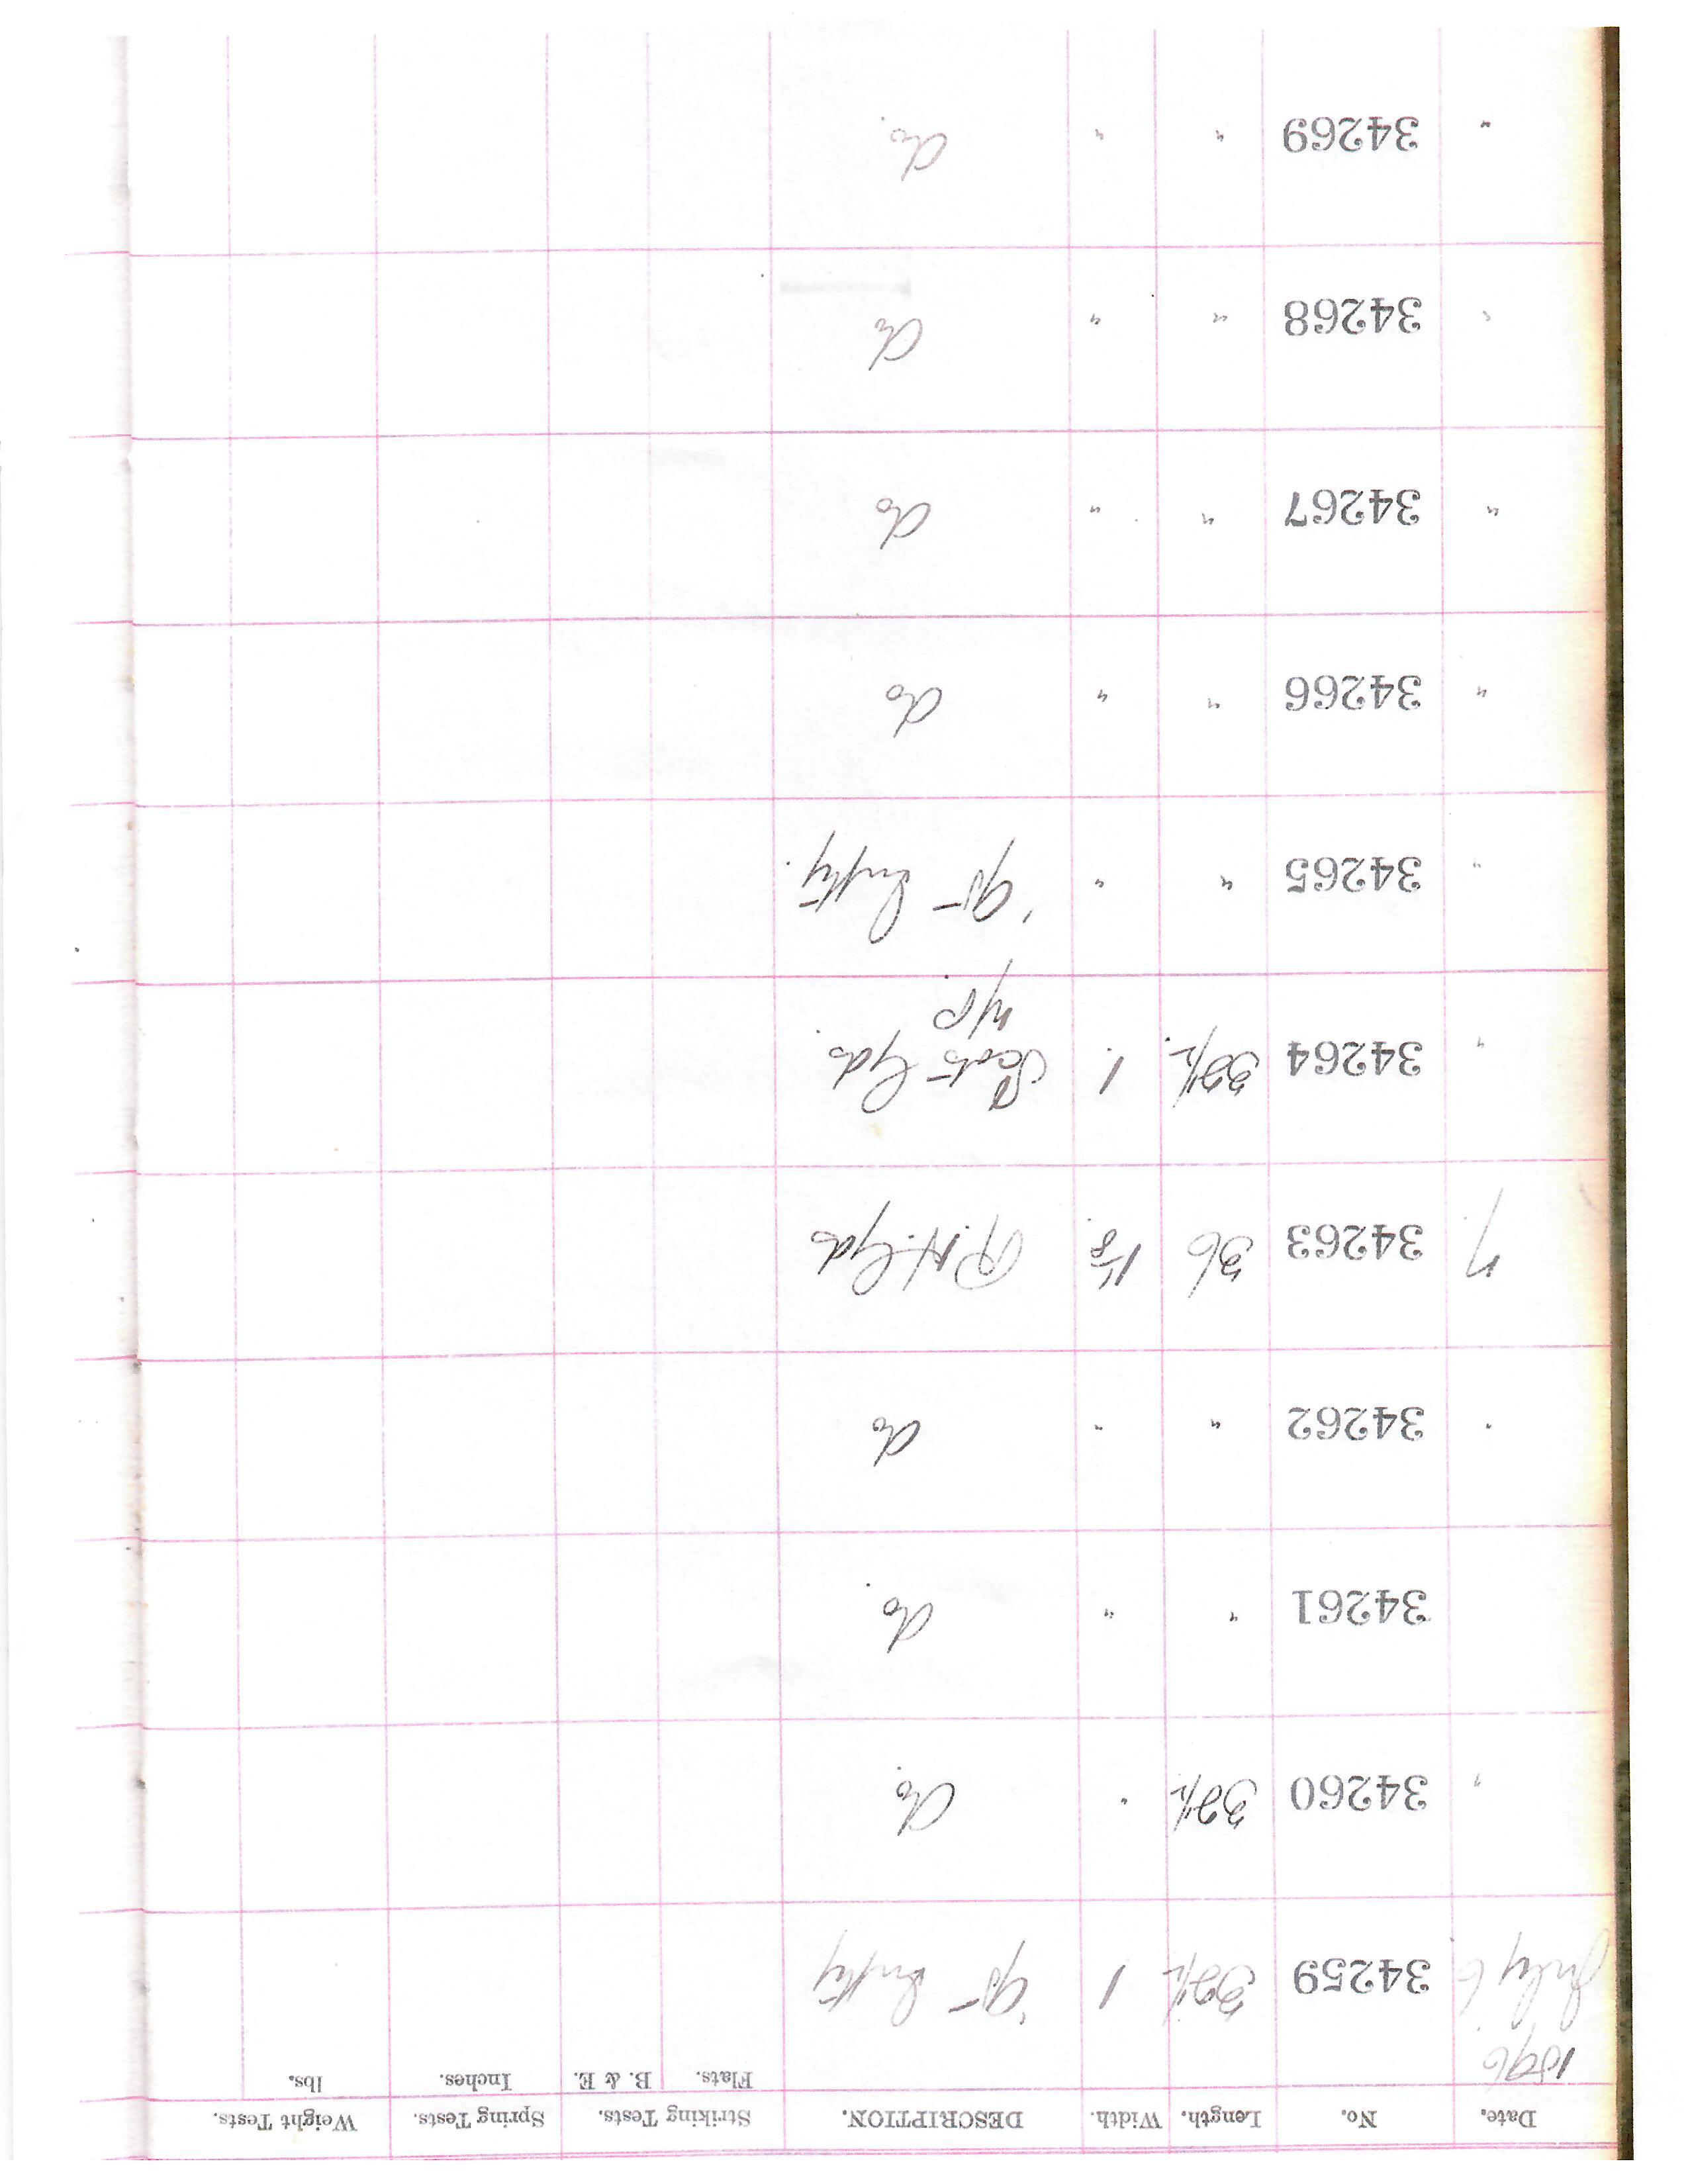 Date. No. Length. Width. DESCRIPTION. Striking Tests. Spring Tests. Weight Tests.
Flats. B. & E. Inches. lbs.
1896
July 6 34259 32½ 1 '95 Infty
" 34260 32½ " do.
34261 " " do.
" 34262 " " do
7. 34263 36 1⅛ R.H. Gds
" 34264 32½. 1. Scots Gds.
n/p.
" 34265 " " '95 Infty.
" 34266 " " do
" 34267 " " do
" 34268 " " do
" 34269 " " do.